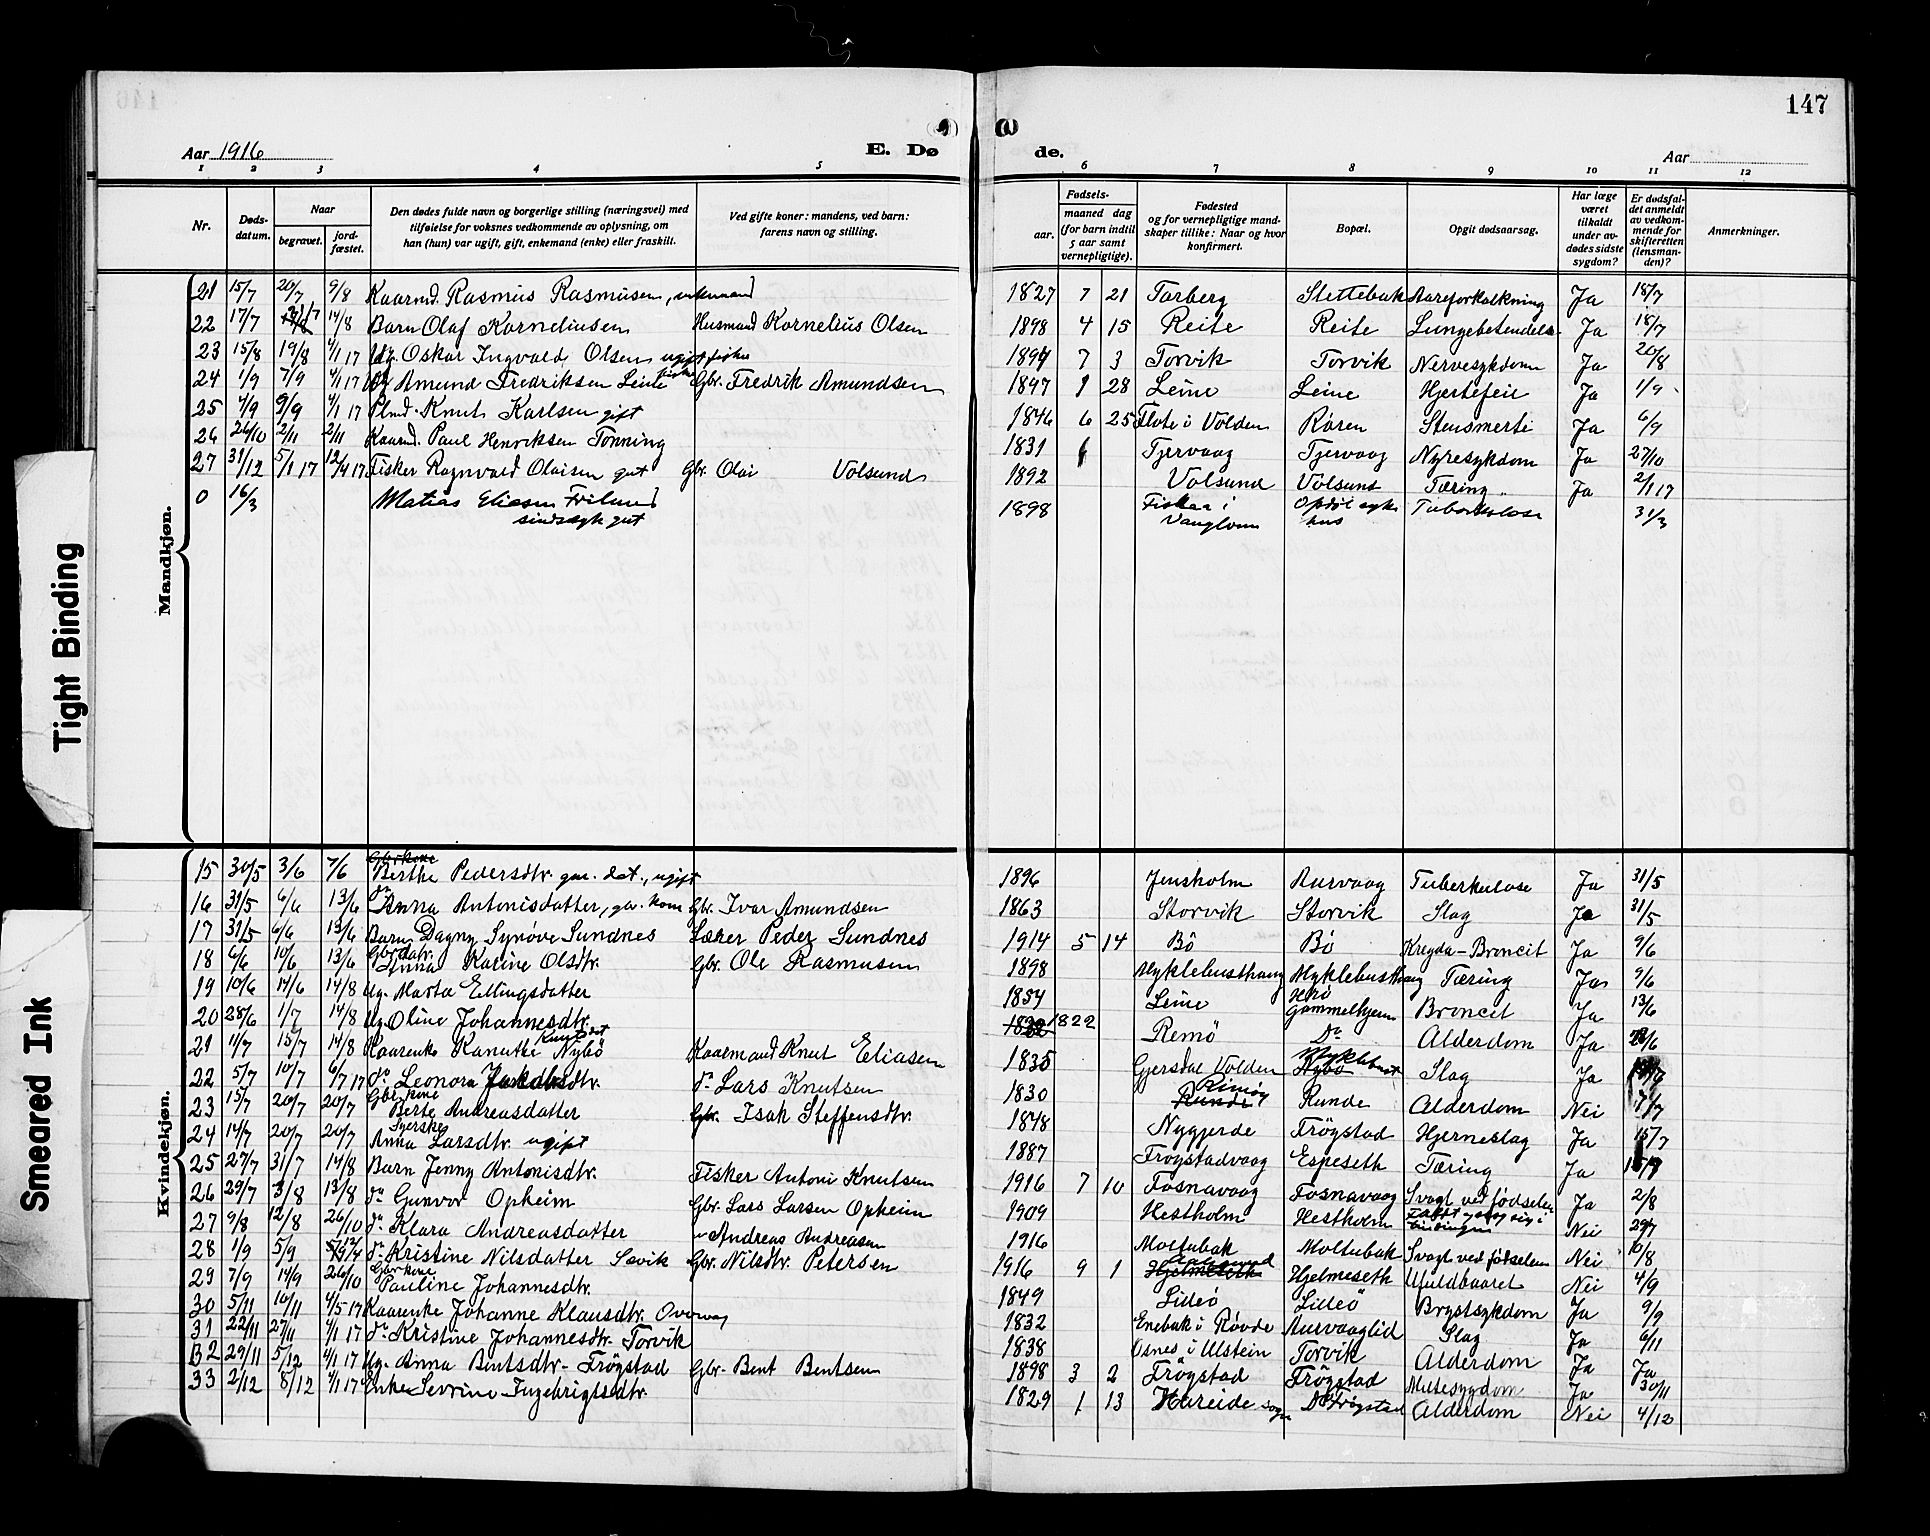 147
Aar 1916
E. Dø
de.
Aar
1 2 3 4 5 6 7 8 9 10 11 12
Nr.
Døds-
datum.
Naar
begravet.
jord-
fæstet.
Den dødes fulde navn og borgerlige stilling (næringsvei) med
tilføielse for voksnes vedkommende av oplysning, om
han (hun) var ugift, gift, enkemand (enke) eller fraskilt.
Ved gifte koner: mandens, ved barn:
farens navn og stilling.
Fødsels-
aar.
maaned dag
(for barn indtil
5 aar samt
vernepligtige).
Fødested
og for vernepligtige mand-
skaper tillike: Naar og hvor
konfirmert.
Bopæl.
Opgit dødsaarsag.
Har læge
været
tilkaldt
under av-
dødes sidste
sygdom?
Er dødsfal-
det anmeldt
av vedkom-
mende for
skifteretten
(lensman-
den)?
Anmerkninger.
Mandkjøn.
21 15/7 20/7 9/8 Kaarmd. Rasmus Rasmussen, enkemand 1827 7 21 Tarberg Slettebak Aareforkalkning Ja 18/7
22 17/7 14/8 Barn Olaf Korneliussen Husmand Kornelius Olsen 1898 4 15 Reite Reite Lungebetendelse Ja 18/7
23 15/8 19/8 4/1 17 Ug. Oskar Ingvald Olsen ugift fisker 1894 7 3 Torvik Torvik Nervesykdom Ja 20/8
24 1/9 7/9 4/1 17 Ug Amund Fredriksen Leine fisker Gbr. Fredrik Amundsen 1897 1 28 Leine Leine Hjertefeil Ja 1/9
25 4/9 9/9 4/1 17 Plmd. Knut Karlsen gift 1846 6 25 Flote i Volden Røren Stensmerte Ja 6/9
26 26/10 2/11 2/11 Kaarmd. Paul Henriksen Tonning 1831 Tjervaag Tjervaag Nyresykdom Ja 27/10
27 31/12 5/1 17 12/4 17 Fisker Ragnvald Olaisen gut Gbr. Olai Volsund 1892 Volsund Volsund Tæring Ja 2/1 17
0 16/3 Matias Eliesen Friland
sindssyk gut 1898 Fiskaa i
Vanglven Opdøl syke
hus Tuberkulose 31/3
Kvindekjøn.
15 30/5 3/6 7/6 Gbrkone
Berthe Pedersdtr. gm. dat., ugift 1896 Jensholm Aurvaag Tuberkulose Ja 31/5
16 31/5 6/6 13/6 Anna Antonisdatter, ga. kone Gbr. Ivar Amundsen 1863 Storvik Storvik Slag Ja 31/5
17 31/5 6/6 13/6 Barn Dagny Synøve Sundnes Lærer Peder Sundnes 1914 5 14 Bö Bö Kregda-Broncit Ja 9/6
18 6/6 10/6 13/6 Gbrdatr.
Anna Karine Olsdtr. Gbr. Ole Rasmussen 1898 Myklebusthaug Myklebusthaug Tæring Ja 9/6
19 10/6 14/6 14/8 Ug. Marta Ellingsdatter 1834 Leine Herö
Gammelhjem Broncit Ja 13/6
20 28/6 1/7 14/8 Ug. Oline Johannesdtr. 1822 Remö Do Alderdom Ja
21 11/7 15/7 14/8 Kaarenke Kanutte Nybö Kaarmand Knut Eliasen 1835 Gjersdal Volden Slag Ja
22 5/7 10/7 6/7 17 do Leonora Jakobsdtr. do Lars Knutsen 1830 Runde Alderdom Nei 7/7
23 15/7 20/7 20/7 Gbrkone
Berte Andreasdatter Gbr. Isak Steffensdtr. 1848 Nygjerde Frögstad Hjerneslag Ja 15/7
24 14/7 20/7 20/7 Syerske
Anna Larsdtr. ugift 1887 Frögstadvaag Espeseth Tæring Ja
25 27/7 31/7 14/8 Barn Jenny Antonisdtr. Fisker Antoni Knutsen 1916 7 10 Fosnavaag Fosnavaag Svagt ved födselen Ja 2/8
26 29/7 3/8 13/8 do Gunvor Opheim Gbr. Lars Larsen Opheim 1909 Hestholm Hestholm Nei 29/7
27 9/8 12/8 26/10 do Klara Andreasdatter " Andreas Andreasen 1916 Moltubak Moltubak Svagt ved fötselen Nei 10/8
28 1/9 5/9 do Kristine Nilsdatter Sævik Gbr. Nilsdtr. Petersen 1916 9 1 Hjelmeseth Hjelmeseth Ufuldbaaret Nei 4/9
29 7/9 14/9 26/10 Gbrkone
Pauline Johannesdtr. 1849 Lideö Lideö Brystsykdom Ja 9/9
30 5/11 10/11 4/5 17 Kaarenke Johanne Klausdtr. Overvag 1832 Enebak i Røvde Aurvaaglid Slag Ja 6/11
31 22/11 27/11 4/1 17 do Kristine Johannesdtr. Torvik 1838 Osnes i Ulstein Torvik Alderdom Ja Ja
32 29/11 5/12 4/1 17 Ug. Anna Bentsdtr. Frögstad Gbr. Bent Bentsen 1898 3 2 Frögstad Frögstad Miltesygdom Ja 30/11
33 2/12 8/12 4/1 17 Enke Sevrine Ingebrigtsdtr. 1829 1 13 Hareide sogn Do Frögstad Alderdom Nei 4/12
Tight Binding
Smeared Ink